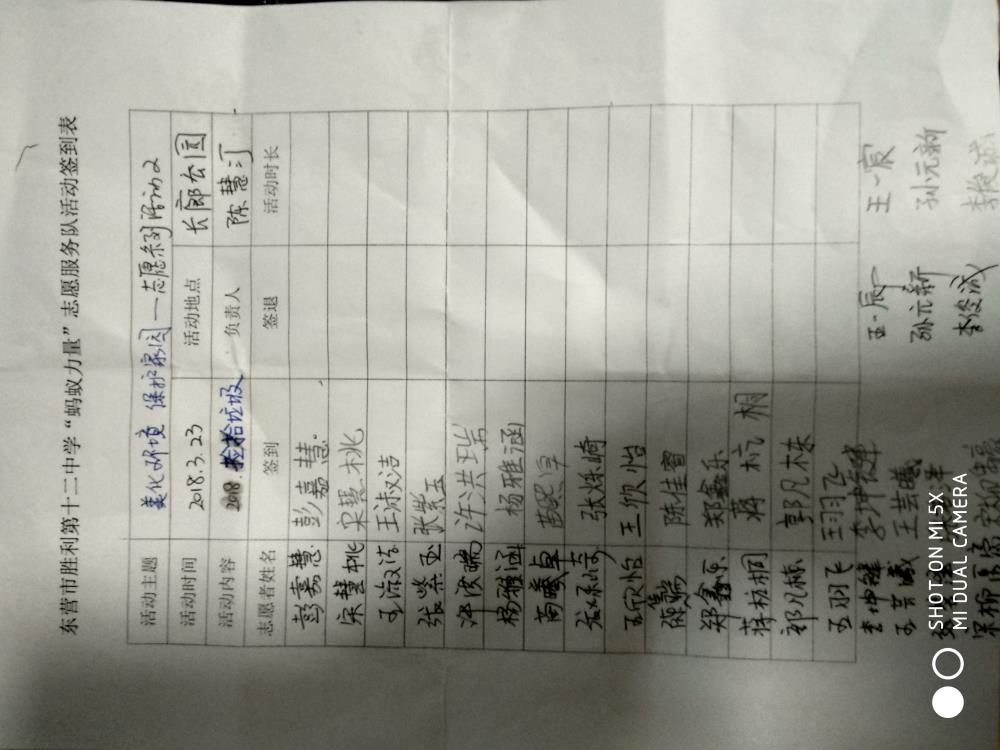 东营市胜利第十二中学“蚂蚁力量”志愿服务队活动签到表
活动主题 美化环境 保护家园—志愿系列活动2
活动时间 2018.3.23 活动地点 长廊公园
活动内容 捡拾垃圾 负责人 陈慧江
志愿者姓名 签到 签退 活动时长
彭嘉慧 彭嘉慧
宋慧桃 宋慧桃
王淑洁 王淑洁
张紫玉 张紫玉
许洪瑞 许洪瑞
杨雅涵 杨雅涵
张姝琦 张姝琦
王欣怡 王欣怡
陈佳睿
郑鑫乐 郑鑫乐
蒋杭桐 蒋杭桐
郭凡栋 郭凡栋
王羽飞 王羽飞
王芸曦 王芸曦
王一宸 王一宸
孙元新 孙元新
李俊诚 李俊诚
SHOT ON MI 5X
MI DUAL CAMERA